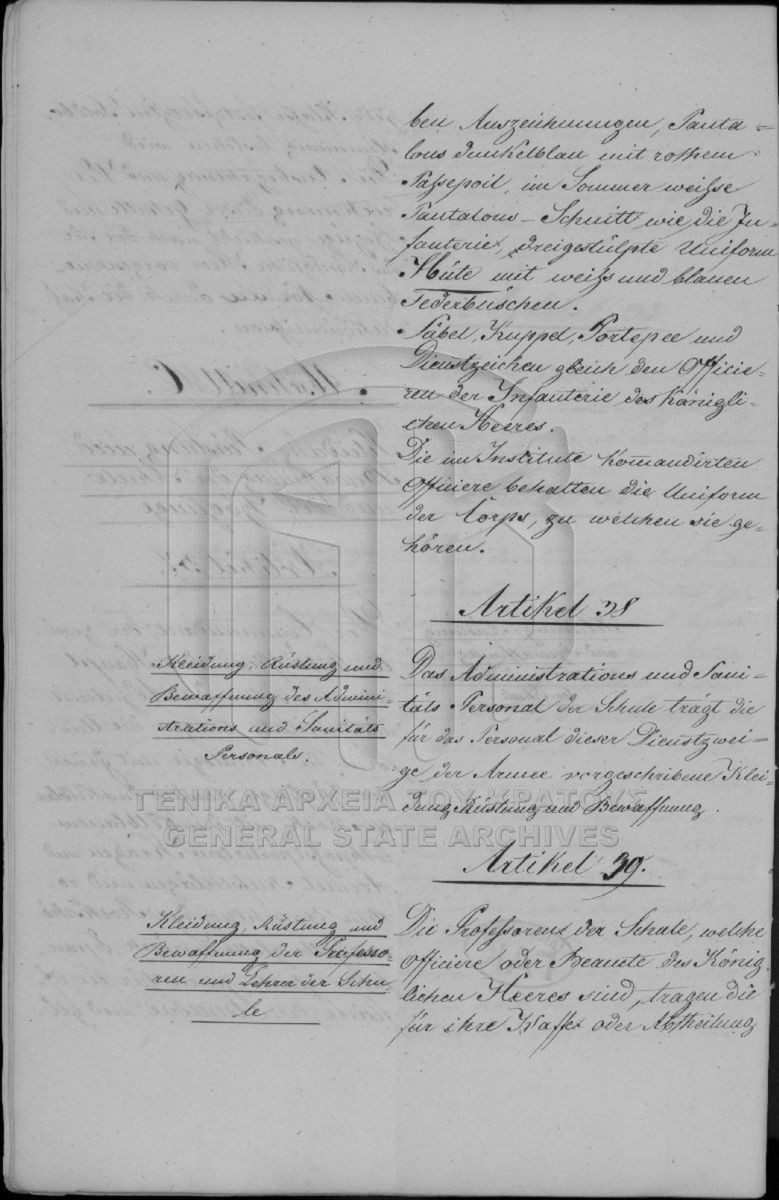 ben Auszeichnungen, Panta-
lons dunkelblau mit rothem
Passepoil, im Sommer weisse
Pantalons - Schnitt wie die In-
fanterie, dreigestülpte Uniform
Hüte mit weiss und blauen
Federbüschen.
Säbel, Kuppel, Portepee und
Dienstzeichen gleich den Officie-
ren der Infanterie des Königli-
chen Heeres.
Die im Institute komandirten
Officiere behalten die Uniform
der Corps, zu welchen sie ge-
hören.
Artikel 38
Kleidung, Rüstung und
Bewaffnung des Admini-
strations und Sanitäts
Personals.
Das Administrations und Sani-
täts Personal der Schule trägt die
für das Personal dieser Dienstzwei-
ge der Armee vorgeschribene Klei-
dung Rüstung und Bewaffnung.
ΓΕΝΙΚΑ ΑΡΧΕΙΑ ΤΟΥ ΚΡΑΤΟΥΣ
GENERAL STATE ARCHIVES
Artikel 39.
Kleidung, Rüstung und
Bewaffnung der Professo-
ren und Lehrer der Schu-
le
Die Professoren der Schule, welche
Officiere oder Beamte des König-
lichen Heeres sind, tragen die
für ihre Waffe oder Abtheilung